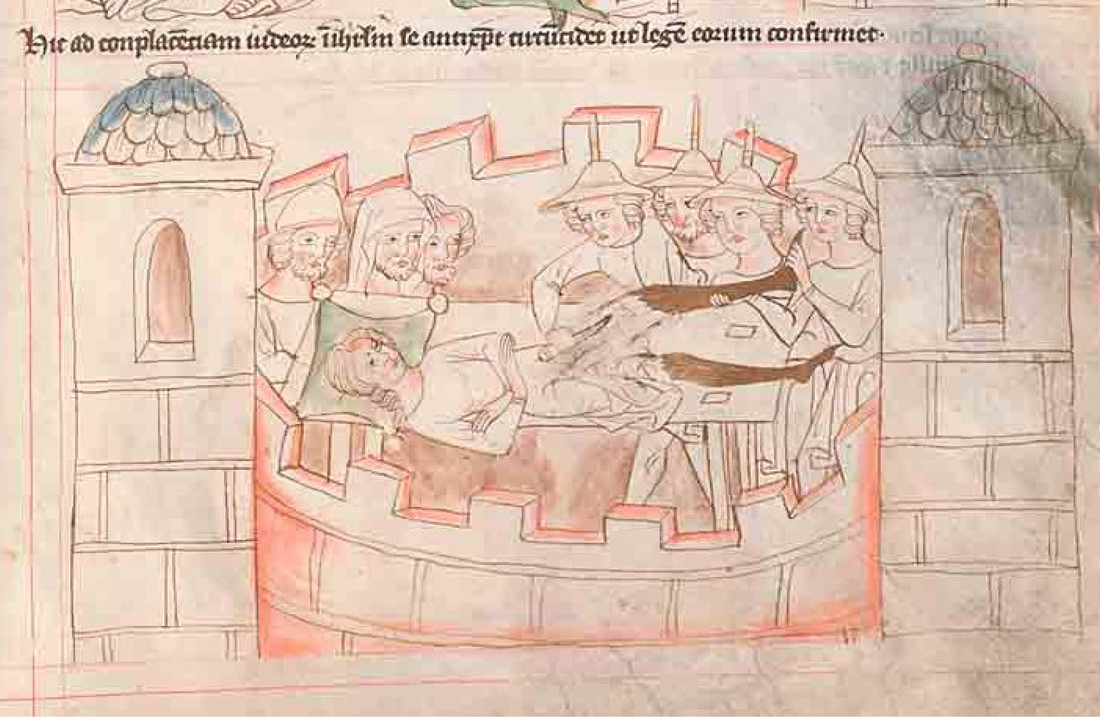 Hic ad conplacēciam iudeoꝝ ī ihrlm̄ se antixp̄c circūcidet ut legē eorum confirmet·